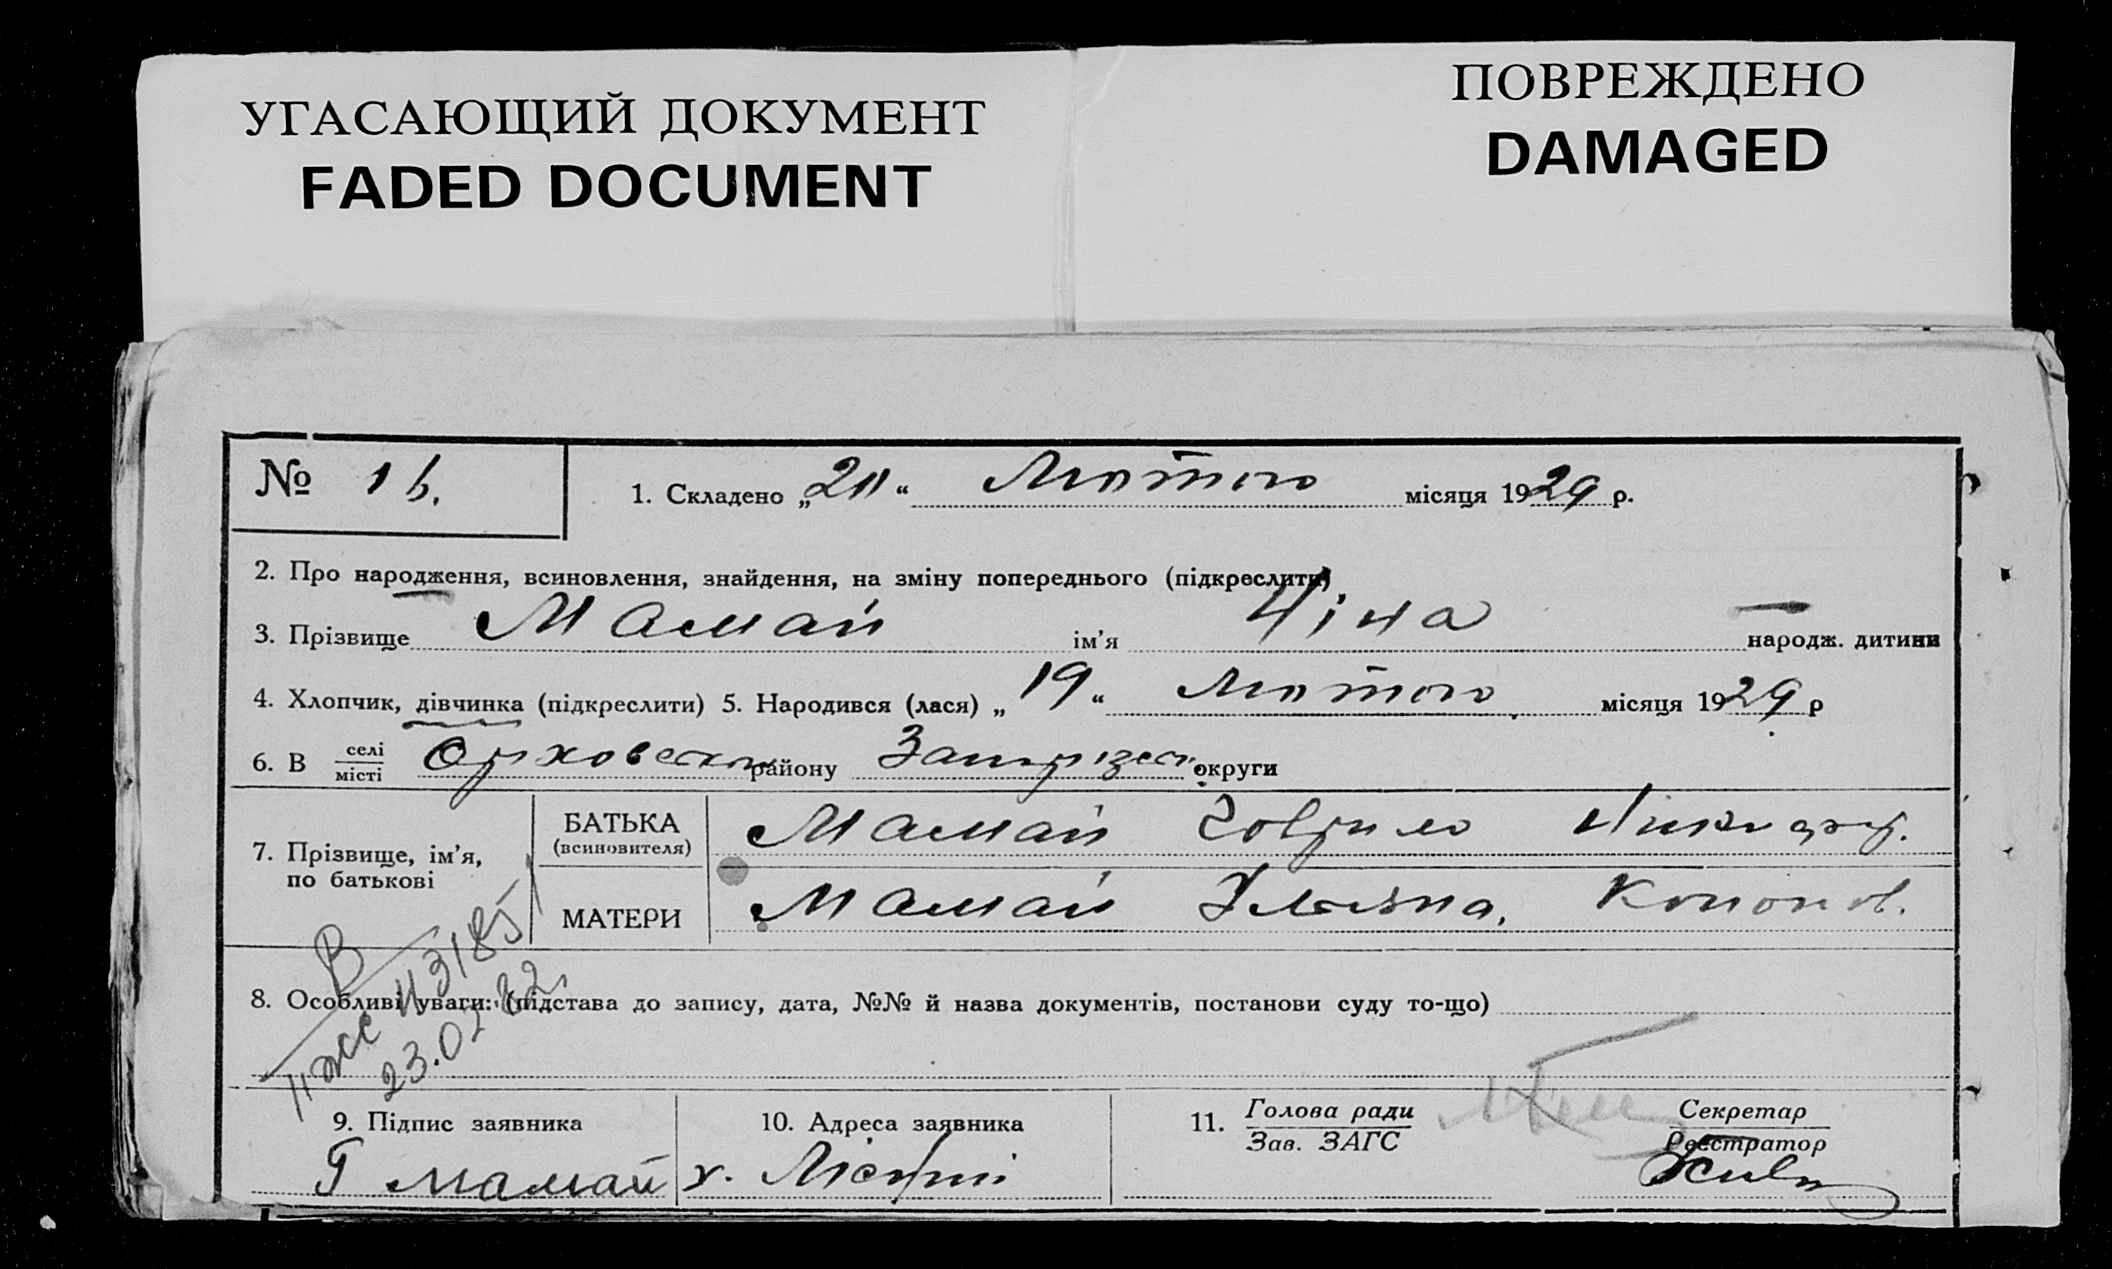 УГАСАЮЩИЙ ДОКУМЕНТ
FADED DOCUMENT
ПОВРЕЖДЕНО
DAMAGED
№ 16.
1. Складено „20“ Лютого місяця 1929 р.
2. Про народження, всиновлення, знайдення, на зміну попереднього (підкреслити)
3. Прізвище Мамай ім’я Ніна народж. дитини
4. Хлопчик, дівчинка (підкреслити) 5. Народився (лася) „19“ Лютого місяця 1929 р
6. В селі місті району округи
7. Прізвище, ім’я, по батькові
БАТЬКА (всиновителя) Мамай Гаврило
МАТЕРИ Мамай Уляна, Кононов.
8. Особливі уваги: (підстава до запису, дата, №№ й назва документів, постанови суду то-що)
23.02.82
9. Підпис заявника
Г Мамай
10. Адреса заявника
х.
11. Голова ради
Зав. ЗАГС
Секретар
Реєстратор